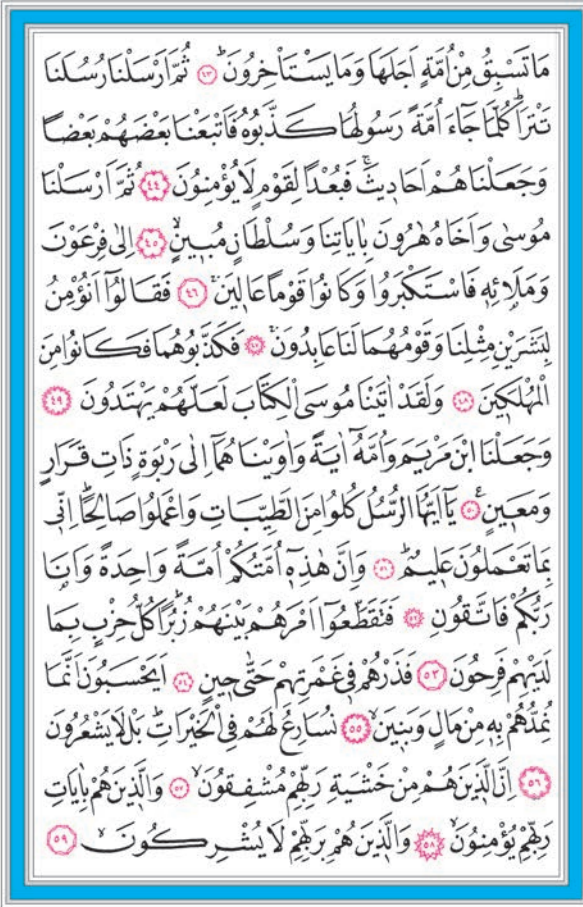 مَا تَسْبِقُ مِنْ اُمَّةٍ اَجَلَهَا وَمَا يَسْتَاْخِرُونَۜ ﴿٤٣﴾ ثُمَّ اَرْسَلْنَا رُسُلَنَا
تَتْرَاۜ كُلَّمَا جَٓاءَ اُمَّةً رَسُولُهَا كَذَّبُوهُ فَاَتْبَعْنَا بَعْضَهُمْ بَعْضًا
وَجَعَلْنَاهُمْ اَحَاد۪يثَۚ فَبُعْدًا لِقَوْمٍ لَا يُؤْمِنُونَ ﴿٤٤﴾ ثُمَّ اَرْسَلْنَا
مُوسٰى وَاَخَاهُ هٰرُونَ بِاٰيَاتِنَا وَسُلْطَانٍ مُب۪ينٍۙ ﴿٤٥﴾ اِلٰى فِرْعَوْنَ
وَمَلَا۬ئِه۪ فَاسْتَكْبَرُوا وَكَانُوا قَوْمًا عَال۪ينَۚ ﴿٤٦﴾ فَقَالُٓوا اَنُؤْمِنُ
لِبَشَرَيْنِ مِثْلِنَا وَقَوْمُهُمَا لَنَا عَابِدُونَۚ ﴿٤٧﴾ فَكَذَّبُوهُمَا فَكَانُوا مِنَ
الْمُهْلَك۪ينَ ﴿٤٨﴾ وَلَقَدْ اٰتَيْنَا مُوسَى الْكِتَابَ لَعَلَّهُمْ يَهْتَدُونَ ﴿٤٩﴾
وَجَعَلْنَا ابْنَ مَرْيَمَ وَاُمَّهُٓ اٰيَةً وَاٰوَيْنَاهُمَٓا اِلٰى رَبْوَةٍ ذَاتِ قَرَارٍ
وَمَع۪ينٍ۟ ﴿٥٠﴾ يَٓا اَيُّهَا الرُّسُلُ كُلُوا مِنَ الطَّيِّبَاتِ وَاعْمَلُوا صَالِحًاۜ اِنّ۪ي
بِمَا تَعْمَلُونَ عَل۪يمٌۜ ﴿٥١﴾ وَاِنَّ هٰذِه۪ٓ اُمَّتُكُمْ اُمَّةً وَاحِدَةً وَاَنَا۬
رَبُّكُمْ فَاتَّقُونِ ﴿٥٢﴾ فَتَقَطَّعُٓوا اَمْرَهُمْ بَيْنَهُمْ زُبُرًاۜ كُلُّ حِزْبٍ بِمَا
لَدَيْهِمْ فَرِحُونَ ﴿٥٣﴾ فَذَرْهُمْ ف۪ي غَمْرَتِهِمْ حَتّٰى ح۪ينٍ ﴿٥٤﴾ اَيَحْسَبُونَ اَنَّمَا
نُمِدُّهُمْ بِه۪ مِنْ مَالٍ وَبَن۪ينَۙ ﴿٥٥﴾ نُسَارِعُ لَهُمْ فِي الْخَيْرَاتِۜ بَلْ لَا يَشْعُرُونَ
﴿٥٦﴾ اِنَّ الَّذ۪ينَ هُمْ مِنْ خَشْيَةِ رَبِّهِمْ مُشْفِقُونَۙ ﴿٥٧﴾ وَالَّذ۪ينَ هُمْ بِاٰيَاتِ
رَبِّهِمْ يُؤْمِنُونَۙ ﴿٥٨﴾ وَالَّذ۪ينَ هُمْ بِرَبِّهِمْ لَا يُشْرِكُونَۙ ﴿٥٩﴾